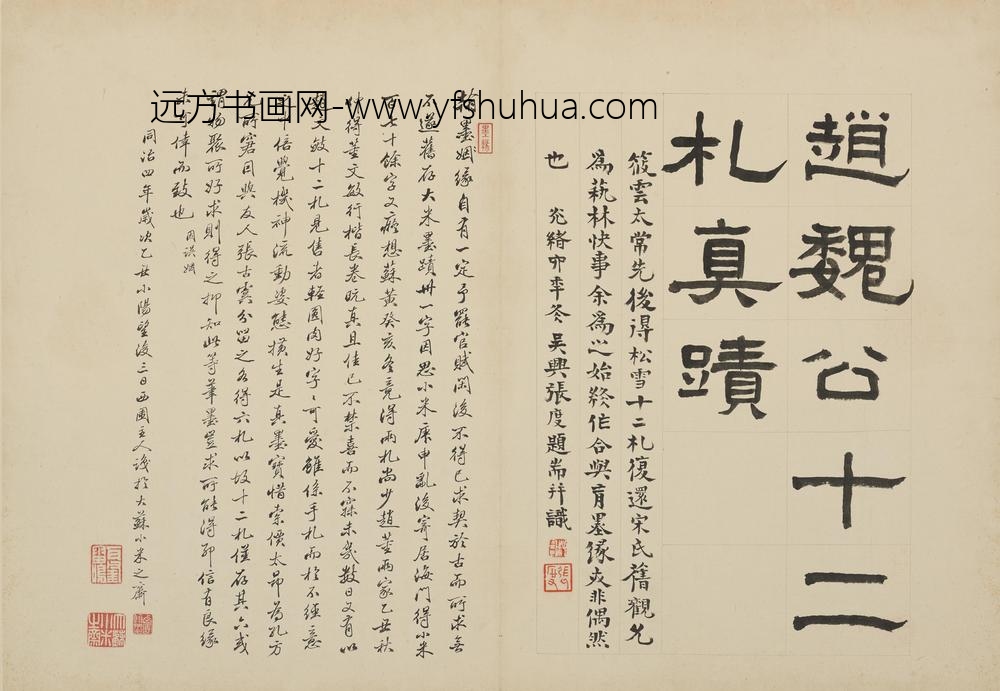 趙魏公十二
札真蹟
筱雲太常先後得松雪十二札復還宋氏舊觀允
為蓺林快事余為之始終作合與有墨緣夫非偶然
也
光緒卯年冬吳興張度題耑并識
翰墨姻緣自有一定予罷官賦閑後不得已求契於古而所求無
不過舊存大米墨蹟卅一字因思小米庚申亂後寄居海門得小米
百七十餘字又癡想蘇黃癸亥冬竟得兩札尚少趙董兩家乙丑秋
仲得董文敏行楷長卷既真且佳已不禁喜而不寐未幾數日又有以
趙文敏十二札見售者輕圓肉好字〻可愛雖係手札而於不經意
中倍覺機神流動姿態橫生是真墨寶惜索價太昂為孔方
兄所窘因與友人張古虞分留之各得六札以故十二札僅存其六或
謂物聚所好求則得之抑知此等筆墨豈求所能得耶信有良緣
未可倖而致也
因誤姻
同治四年歲次乙丑小陽望後三日西園主人識於大蘇小米之齋
远方书画网-www.yfshuhua.com